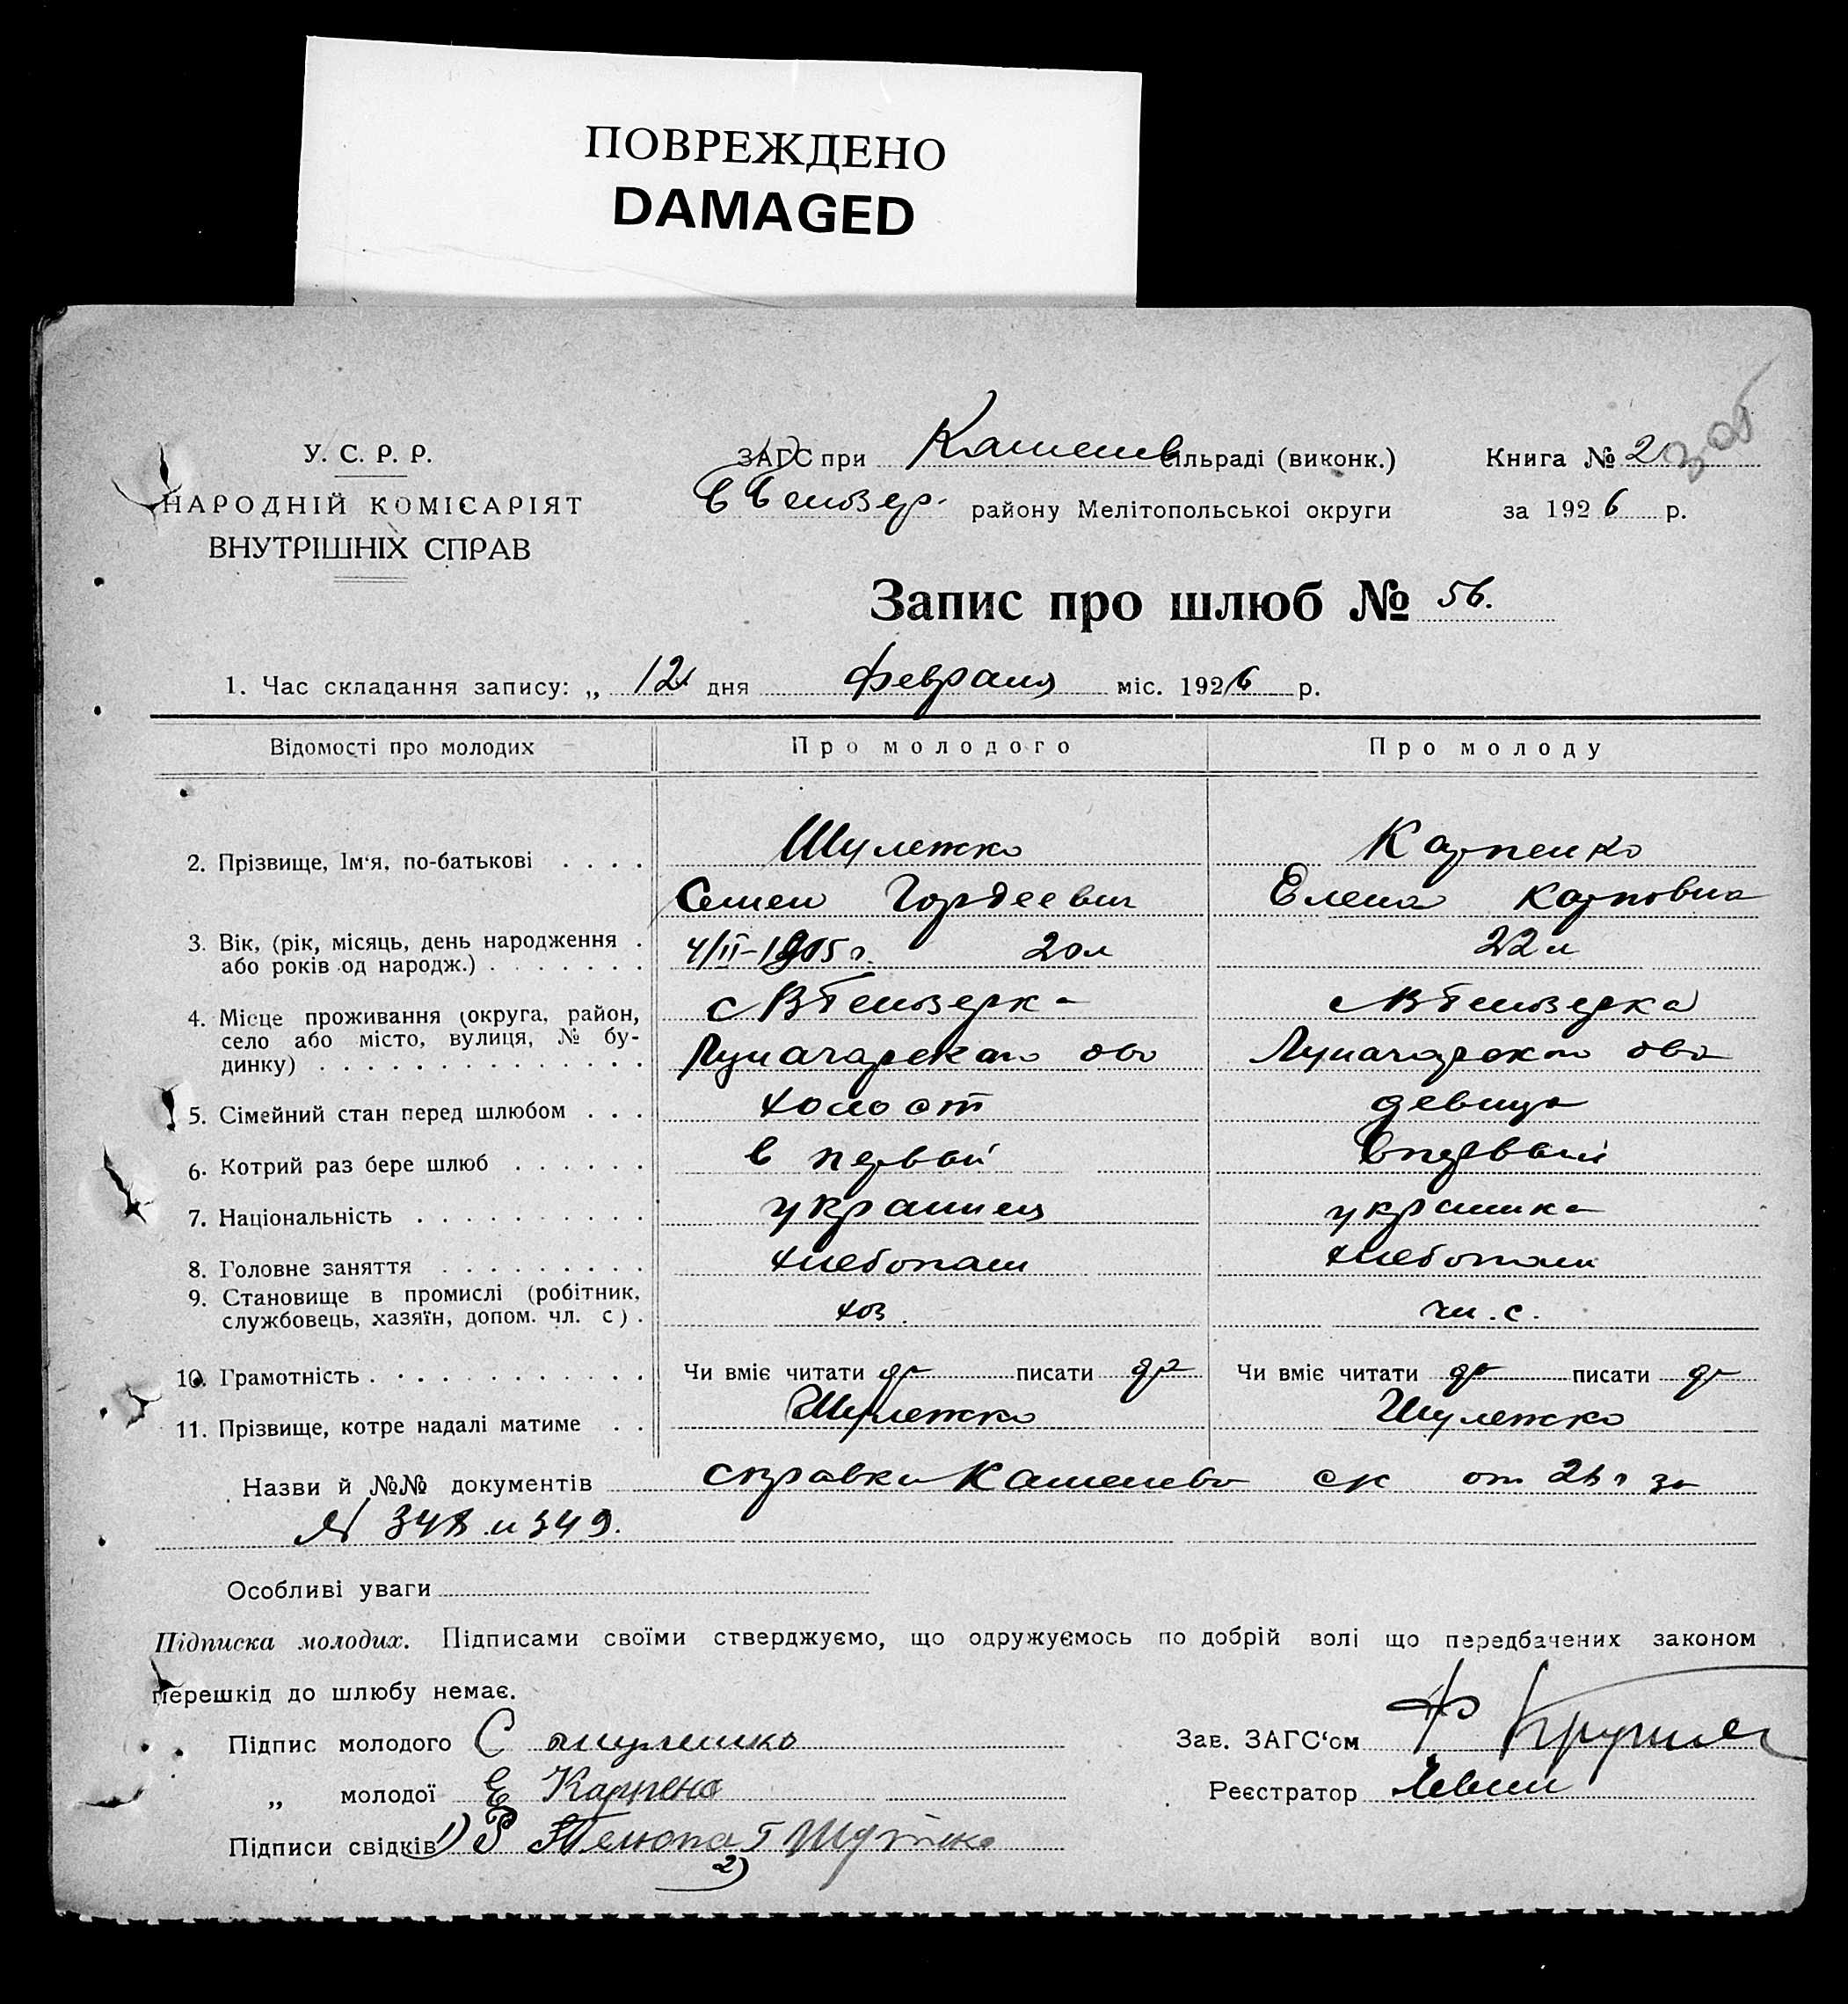 ПОВРЕЖДЕНО
DAMAGED
У. С. Р. Р.
НАРОДНІЙ КОМІСАРІЯТ
ВНУТРІШНІХ СПРАВ
ЗАГС при сільраді (виконк.)
району Мелітопольської округи
Книга № 2
за 1926 р.
Запис про шлюб № 56.
1. Час складання запису: „ 12 дня февраля міс. 1926 р.
Відомості про молодих Про молодого Про молоду
2. Прізвище, Ім'я, по-батькові . . . . Шулежко Карпенко
Семен Гордеевич Елена Карповна
3. Вік, (рік, місяць, день народження . 4/II-1905 г. 20 л 22 л
або років од народж.) . . . . . . .
4. Місце проживання (округа, район, с В Белозерка с В Белозерка
село або місто, вулиця, № бу-
динку) . . . . . . . . . . . . . . Луначарского Луначарского
5. Сімейний стан перед шлюбом . . . холост девица
6. Котрий раз бере шлюб . . . . . . в первый в первый
7. Національність . . . . . . . . . . украинец украинка
8. Головне заняття . . . . . . . . . хлебопаш хлебопаш
9. Становище в промислі (робітник,
службовець, хазяїн, допом. чл. с) . хоз. чл. с.
10. Грамотність . . . . . . . . . . . . Чи вміє читати да писати да Чи вміє читати да писати да
11. Прізвище, котре надалі матиме . . Шулежко Шулежко
Назви й №№ документів справки ск от за
№ 348 и 349.
Особливі уваги
Підписка молодих. Підписами своїми стверджуємо, що одружуємось по добрій волі що передбачених законом
перешкід до шлюбу немає.
Підпис молодого С
„ молодої Е
Підписи свідків 1)
2)
Зав. ЗАГС'ом
Реєстратор